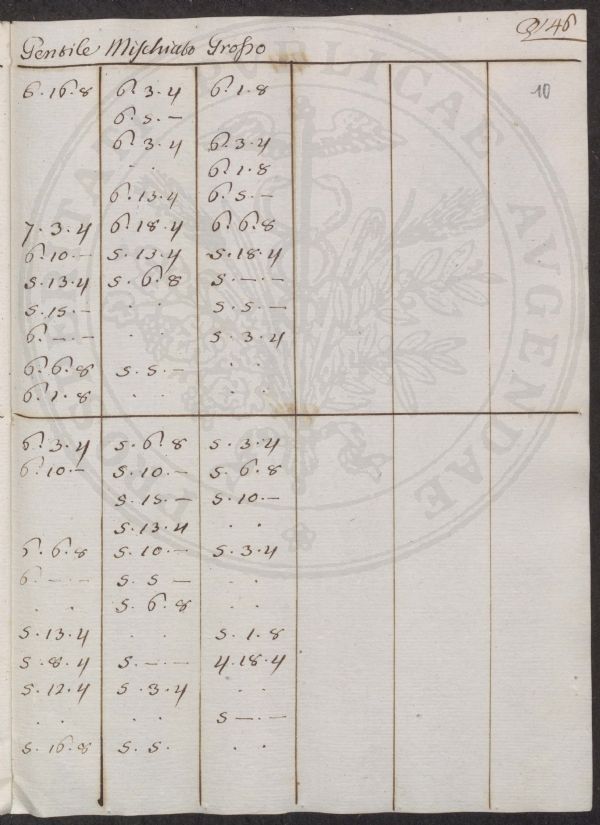 46
Gentile Mischiato Grosso
10
6. 16. 8 6. 3. 4 6. 1. 8
6. 5. —
6. 3. 4 6. 3. 4
. . 6. 1. 8
6. 13. 4 6. 5. —
7. 3. 4 6. 18. 4 6. 6. 8
6. 10. — 5. 13. 4 5. 18. 4
5. 13. 4 5. 6. 8 5. —. —
5. 15. — . . 5. 5. —
6. —. — . . 5. 3. 4
6. 6. 8 5. 5. — . .
6. 1. 8 . . . .
6. 3. 4 5. 6. 8 5. 3. 4
6. 10. — 5. 10. — 5. 6. 8
5. 15. — 5. 10. —
5. 13. 4 . .
6. 6. 8 5. 10. — 5. 3. 4
6. —. — 5. 5 — . .
. . 5. 6. 8 . .
5. 13. 4 . . 5. 1. 8
5. 8. 4 5. —. — 4. 18. 4
5. 12. 4 5. 3. 4 . .
. . . . 5 —. —
5. 16. 8 5. 5. . .
PROSPERITATI PUBLICAE AVGENDAE